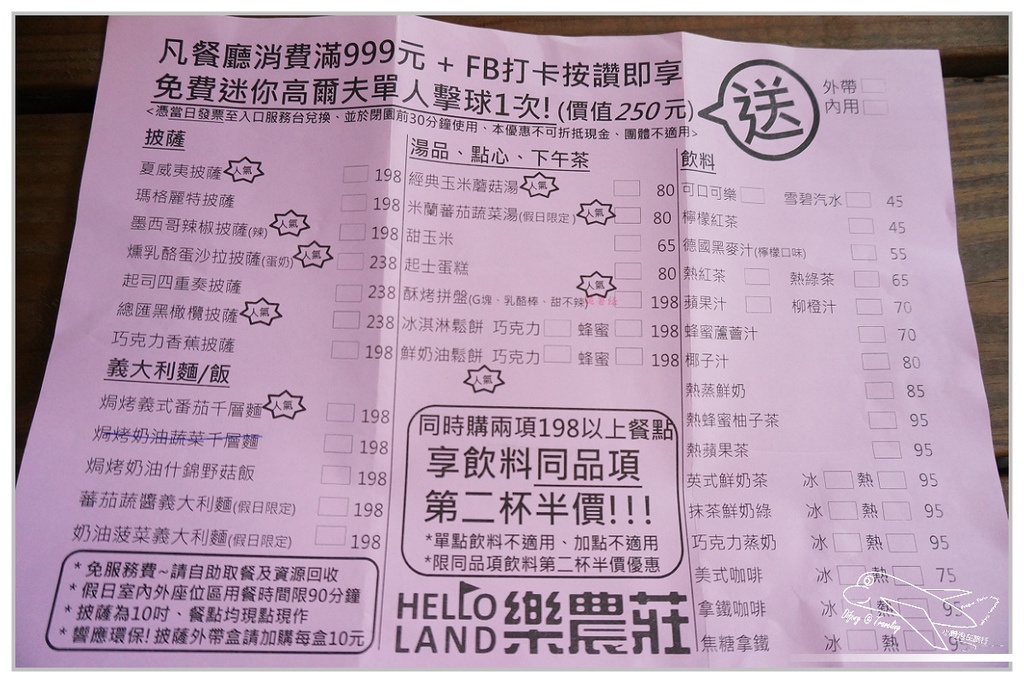 凡餐廳消費滿999元 + FB打卡按讚即享
免費迷你高爾夫單人擊球1次! (價值250元)
<憑當日發票至入口服務台兌換、並於閉園前30分鐘使用、本優惠不可折抵現金、團體不適用>
送
外帶
內用
披薩
夏威夷披薩 人氣 198
瑪格麗特披薩 198
墨西哥辣椒披薩(辣) 人氣 198
燻乳酪蛋沙拉披薩(蛋奶) 人氣 238
起司四重奏披薩 238
總匯黑橄欖披薩 人氣 238
巧克力香蕉披薩 198
義大利麵/飯
焗烤義式番茄千層麵 人氣 198
焗烤奶油蔬菜千層麵 198
焗烤奶油什錦野菇飯 198
蕃茄蔬醬義大利麵(假日限定) 198
奶油菠菜義大利麵(假日限定) 198
* 免服務費~請自助取餐及資源回收
* 假日室內外座位區用餐時間限90分鐘
* 披薩為10吋、餐點均現點現作
* 響應環保! 披薩外帶盒請加購每盒10元
湯品、點心、下午茶
經典玉米蘑菇湯 人氣 80
米蘭蕃茄蔬菜湯(假日限定) 人氣 80
甜玉米 65
起士蛋糕 80
酥烤拼盤(G塊、乳酪棒、甜不辣) 人氣 198
冰淇淋鬆餅 巧克力 蜂蜜 198
鮮奶油鬆餅 巧克力 蜂蜜 198
人氣
同時購兩項198以上餐點
享飲料同品項
第二杯半價!!!
*單點飲料不適用、加點不適用
*限同品項飲料第二杯半價優惠
HELLO
LAND
樂農莊
飲料
可口可樂 雪碧汽水 45
檸檬紅茶 45
德國黑麥汁(檸檬口味) 55
熱紅茶 熱綠茶 65
蘋果汁 柳橙汁 70
蜂蜜蘆薈汁 70
椰子汁 80
熱蒸鮮奶 85
熱蜂蜜柚子茶 95
熱蘋果茶 95
英式鮮奶茶 冰 熱 95
抹茶鮮奶綠 冰 熱 95
巧克力蒸奶 冰 熱 95
美式咖啡 冰 熱 75
拿鐵咖啡 冰 熱 95
焦糖拿鐵 冰 熱